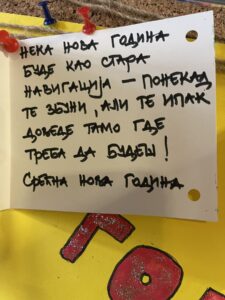 НЕКА НОВА ГОДИНА
БУДЕ КАО СТАРА
НАВИГАЦИЈА – ПОНЕКАД
ТЕ ЗБУНИ, АЛИ ТЕ ИПАК
ДОВЕДЕ ТАМО ГДЕ
ТРЕБА ДА БУДЕШ!
СРЕЋНА НОВА ГОДИНА